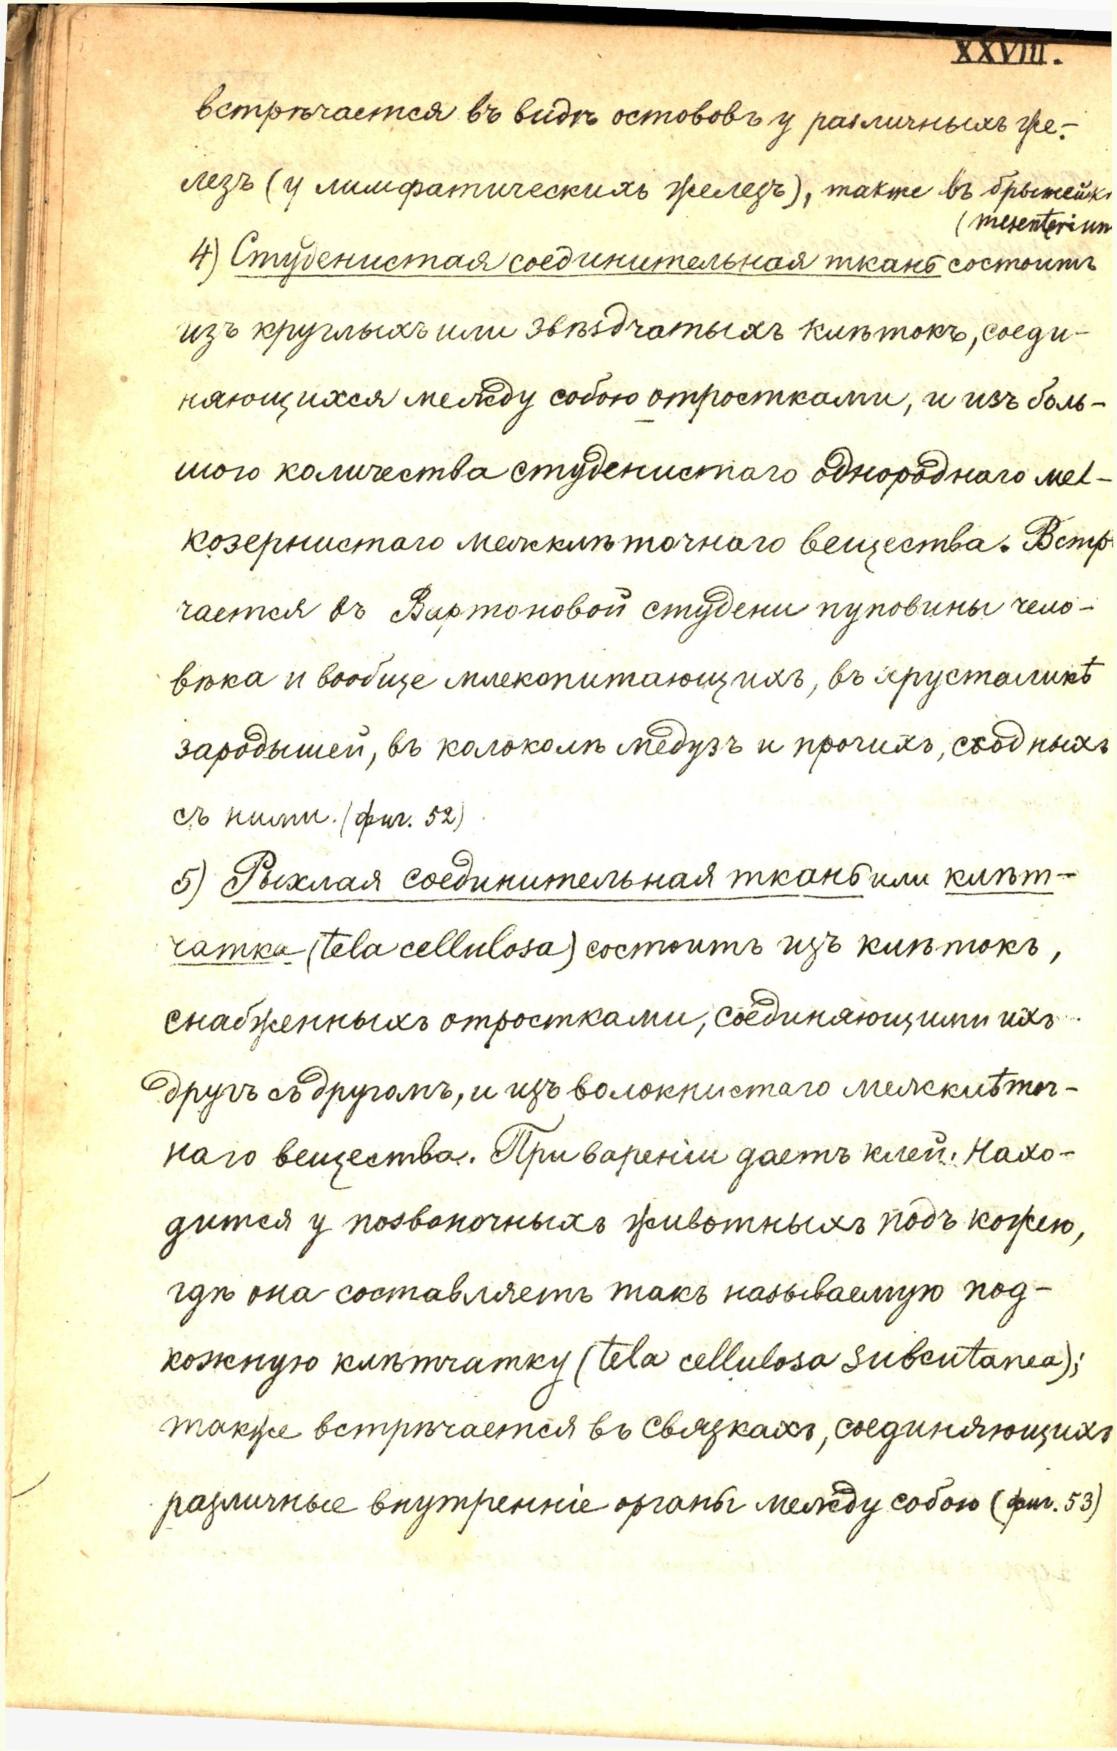 XXVIII.
встрѣчается въ видѣ остововъ у различныхъ же-
лезъ (у лимфатическихъ железъ), также въ брыжейк
(mesenterium
4) Студенистая соединительная ткань состоитъ
изъ круглыхъ или звѣздчатыхъ клѣтокъ, соеди-
няющихся между собою отростками, и изъ боль-
шого количества студенистаго однороднаго мел-
козернистаго межклѣточнаго вещества. Встрѣ
чается въ Вартоновой студени пуповины чело-
вѣка и вообще млекопитающихъ, въ хрусталикѣ
зародышей, въ колоколѣ медузъ и прочихъ, сходныхъ
съ ними. (фиг. 52)
5) Рыхлая соединительная ткань или клѣт-
чатка (tela cellulosa) состоитъ изъ клѣтокъ,
снабженныхъ отростками, соединяющими ихъ
другъ съ другомъ, и изъ волокнистаго межклѣточ-
наго вещества. При вареніи даетъ клей. Нахо-
дится у позвоночныхъ животныхъ подъ кожею,
гдѣ она составляетъ такъ называемую под-
кожную клѣтчатку (tela cellulosa subcutanea);
также встрѣчается въ связкахъ, соединяющихъ
различные внутренніе органы между собою (фиг. 53)